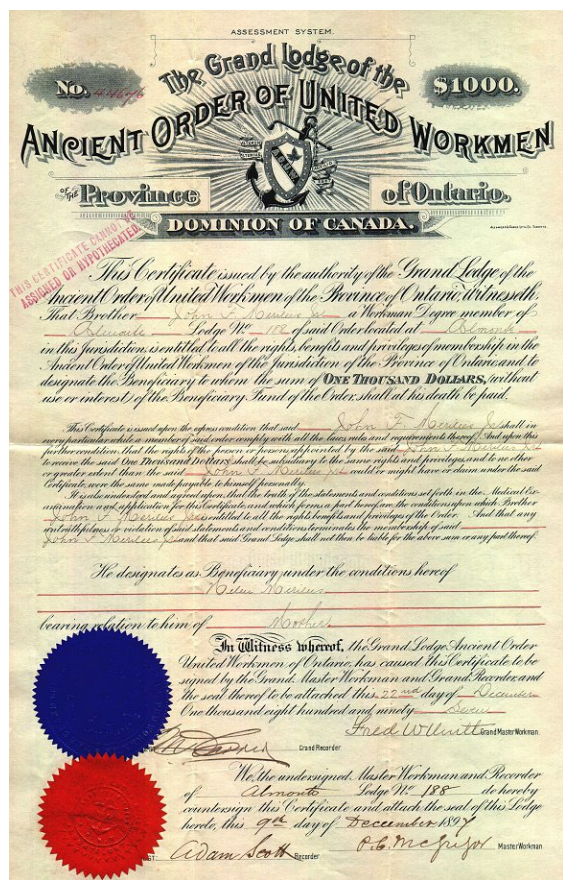 ASSESSMENT SYSTEM.
No.
$1000.
The Grand Lodge of the
ANCIENT ORDER OF UNITED WORKMEN
OF THE Province of Ontario.
DOMINION OF CANADA.
THIS CERTIFICATE CANNOT BE
ASSIGNED OR HYPOTHECATED.
This Certificate issued by the authority of the Grand Lodge of the
Ancient Order of United Workmen of the Province of Ontario, Witnesseth,
That Brother John F. a Workman Degree member of
Almonte Lodge No. 188 of said Order located at Almonte
in this Jurisdiction, is entitled to all the rights, benefits and privileges of membership in the
Ancient Order of United Workmen of the Jurisdiction of the Province of Ontario, and to
designate the Beneficiary to whom the sum of ONE THOUSAND DOLLARS, without
use or interest, of the Beneficiary Fund of the Order, shall at his death be paid.
This Certificate is issued upon the express condition that said John F. shall in
every particular while a member of said order comply with all the laws rules and requirements thereof. And upon this
further condition, that the rights of the person or persons appointed by the said John F.
to receive the said One Thousand Dollars, shall be subsidiary to the same rights and privileges, and to no other
or greater extent than the said John F. could or might have or claim under the said
Certificate, were the same made payable to himself personally.
It is also understood and agreed upon, that the truth of the statements and conditions set forth in the Medical Ex-
amination and application for this Certificate, and which forms a part hereof, are the conditions upon which Brother
John F. is entitled to all the rights benefits and privileges of the Order. And that any
untruthfulness or violation of said statements and conditions terminates the membership of said
John F. and that said Grand Lodge shall not then be liable for the above sum or any part thereof.
He designates as Beneficiary under the conditions hereof
Helen
bearing relation to him of Mother
In Witness whereof, the Grand Lodge Ancient Order
United Workmen of Ontario, has caused this Certificate to be
signed by the Grand Master Workman and Grand Recorder, and
the seal thereof to be attached this 22nd day of December
One thousand eight hundred and ninety Seven
Fred W Grand Master Workman.
Grand Recorder
We, the undersigned, Master Workman and Recorder
of Almonte Lodge No. 188 do hereby
countersign this Certificate and attach the seal of this Lodge
hereto, this 9th day of December 1897
Adam Scott Recorder P.C. McGregor Master Workman